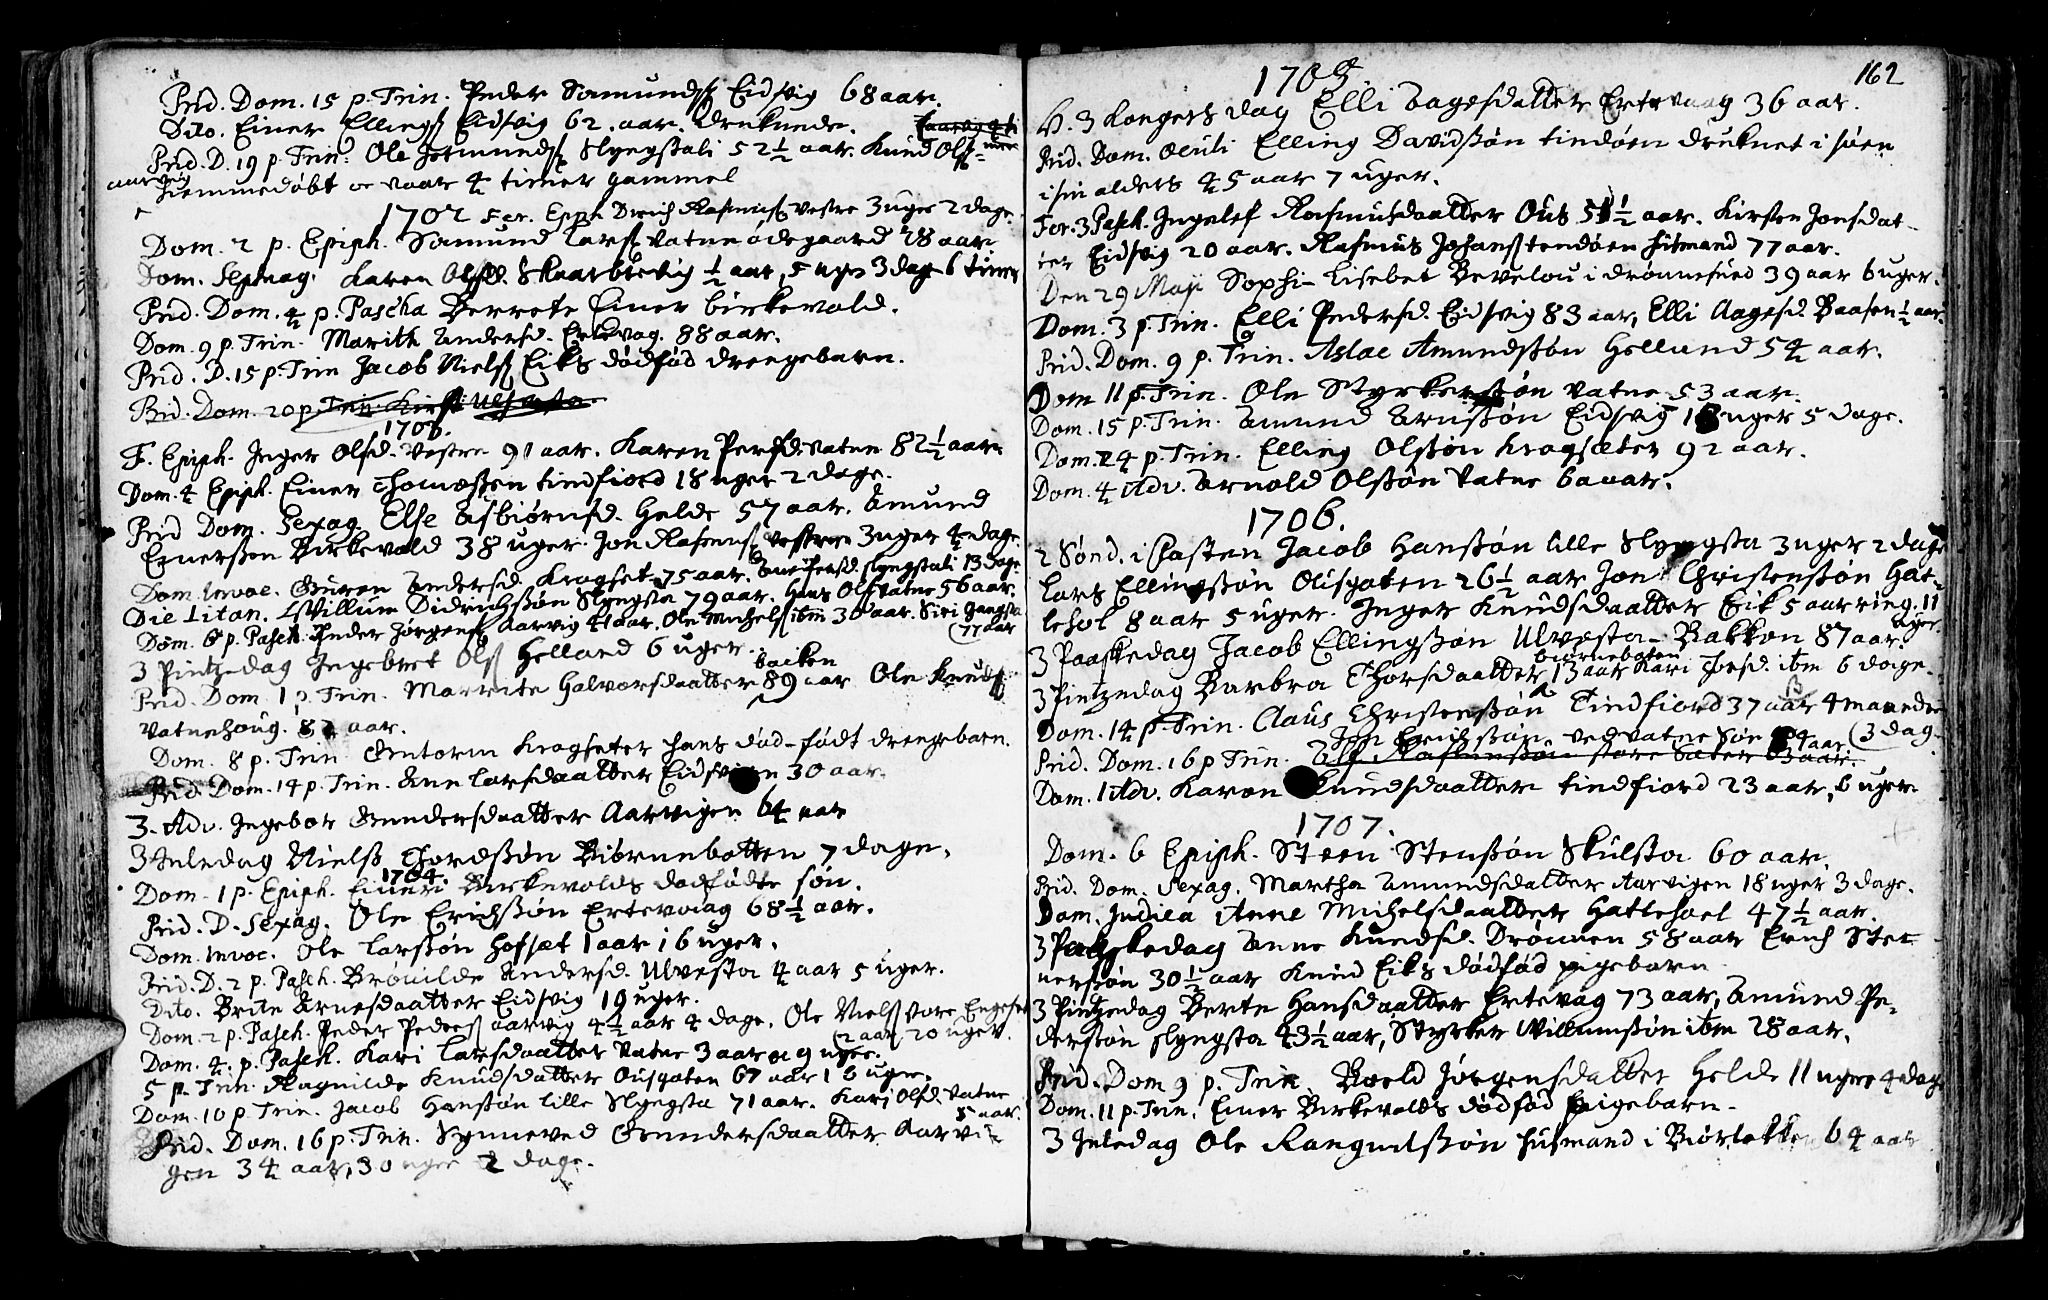 Prid. Dom. 15 p. Trin. Peder Samundſ Eidsvig 68 aar.
Dito. Einer Ellingſ Eidsvig 62. aar. druknede.
Prid. D. 19 p. Trin. Ole Jetmundſ Slyngstali 52½ aar. Knud Olſ
aarvig
hiemmedøbt oc vaar 4 timer gammel
1702 Vestre 3 uger 2 dage.
Dom. 2 p. Epiph. Samund Larſ Vatne ødegaard 28 aar
Dom. Septuag. Karen Olsd. Skaarbrevig ½ aar, 5 uger 3 dage 6 timer
Prid. Dom. 4 p. Pascha Berrete Einer birkevold.
Dom. 9 p. Trin. Marith Andersd. Ertevaag. 88 aar.
Prid. D. 15 p. Trin Jacob Nielſ Eiks dødfød drengebarn.
Prid. Dom. 20 p. Trin Ulvesta
1703.
F. Epiph. Inger Olsd. Vestre 91 aar. Karen Persd. Vatne 82½ aar
Dom. 4 Epiph. Einer Thomaſsen tindfiord 18 uger 2 dage.
Prid Dom. Sexag. Else Asbiørnsd. Helde 57 aar. Amund
Einerſsen Birkevold 38 uger. Jon Rasmusſ Vestre 3 uger 4 dage.
Dom. Invoc. Guren Andersd. Kragset 75 aar. slyngstali 13 dage
Die Litan. Willum Didrichſsøn Slyngsta 79 aar. Hans Olſ Vatne 56 aar.
Dom. 6 p. Pasch. Peder Jørgenſ Aarvig 41 aar. Ole Michelſ ibm 30 aar. Siri Gangsta
(77 aar
3 Pintzedag Ingebret Olſ Helland 6 uger.
backen
Prid. Dom. 1 p. Trin. Marrite Halvorsdaatter 89 aar Ole Knudſ
Vatnehaug. aar.
Dom. 8 p. Trin Krogseter hans død-født drengebarn.
Prid. Dom. 14 p. Trin. Ane Larsdaatter Eidsvigen 30 aar.
3. Adv. Ingebor Gundersdaatter Aarvigen 64 aar
3 Juledag Nielſs Thordſsøn Biørnebotten 7 dage.
1704.
Dom. 1 p. Epiph. Einer Birkevolds dødfødte søn.
Prid. D. Sexag. Ole Erichſsøn Ertevaag 68½ aar.
Dom. Invoc. Ole Larſsøn Hofset 1 aar 16 uger.
Prid. D. 2 p. Pasch. Brønilde Andersd. Ulvesta 4 aar 5 uger.
Dito. Brite Arnesdaatter Eidsvig 19 uger.
Dom. 2 p. Pasch. Peder Pederſ aarvig 4½ aar 4 dage. Ole Nielſ store Engeset
(2 aar 20 uger.
Dom. 4. p. Pasch. Kari Larsdaatter Vatne 3 aar 9 uger.
5 p. Trin. Ragnilde Knudsdatter Ousgoten 67 aar 16 uger.
Dom. 10 p. Trin. Jacob Hanſsøn lille Slyngsta 71 aar. Kari Olsd. Vatne
8 aar.
Prid. Dom. 16 p. Trin. Synneved Gundersdaatter Aarvi-
gen 34 aar, 30 uger 2 dage.
162
1705
H. 3 Kongers dag Elli Aagesdatter Ertevaag 36 aar.
Prid. Dom. Oculi Elling Davidſsøn tindøen druknet i søen
i sin alders 45 aar 7 uger.
Fer. 3 Pasch. Ingelef Rasmusdaatter Ous 51½ aar. Kirsten Jonsdat-
ter Eidsvig 20 aar. Rasmus Johanſ tendøen husmand 77 aar.
Den 29 Maji Sophi Lisebet Bevelou i drønnesund 39 aar 6 uger.
Dom. 3 p. Trin. Elli Pedersd. Eidsvig 83 aar, Elli Aagesd. Baasen ½ aar.
Prid. Dom. 9 p. Trin. Aslac Amundſsøn Hellund 54 aar.
Dom 11 p. Trin. Ole Styrkerſsøn Vatne 53 aar.
Dom. 15 p. Trin. Amund Arnſsøn Eidsvig 18 uger 5 dage.
Dom. 24 p. Trin. Elling Olſsøn Kragsæter 92 aar.
Dom. 4 Adv. Arnold Olſsøn Vatne 6 aar.
1706.
2 Sønd. i Fasten Jacob Hanſsøn lille Slyngsta 3 uger 2 dage
Lars Ellingſsøn Ousgoten 26½ aar Jon Christenſsøn Hat-
lehol 8 aar 5 uger. Inger Knudsdaatter Eik 5 aar ring. 11
uger.
3 Paaskedag Jacob Ellingſsøn Ulvesta-Bakken 87 aar.
biørneboten
3 Pintzedag Barbra Thorsdaatter 13 aar Kari Joesd. ibm 6 dage.
Dom. 14 p. Trin. Claus Christenſsøn Tindfiord 37 aar 4 maaneder
(3 dag.
ved Vatne 4 aar
Prid. Dom. 16 p Trin. Ole Rasmusſsøn store Sæter 63 aar.
Dom. 1 Adv. Karen Knudsdaatter tindfiord 23 aar, 6 uger
1707.
Dom. 6 Epiph. Steen Stenſsøn Skulsta 60 aar.
Prid. Dom. Sexag. Martha Amundsdatter Aarvigen 18 uger 3 dage.
Dom. Judica Anne Michelsdaatter Hattehoel 47½ aar.
3 Paaskedag Anne Knudsd. Drønnen 58 aar Erich Ste-
nerſsøn 30½ aar Knud Eiks dødfød pigebarn
3 Pintzedag Berte Hansdaatter Ertevag 73 aar, Amund Pe-
derſsøn slyngsta 43½ aar, Styrker Willumſsøn ibm 28 aar.
Prid. Dom 9 p. Trin. Boeld Jørgensdatter Helde 11 uger 4 dage
Dom. 11 p. Trin. Einer Birkevolds dødfød Pigebarn.
3 Juledag Ole Rangnilſsøn husmand i Biørlokken 64 aar